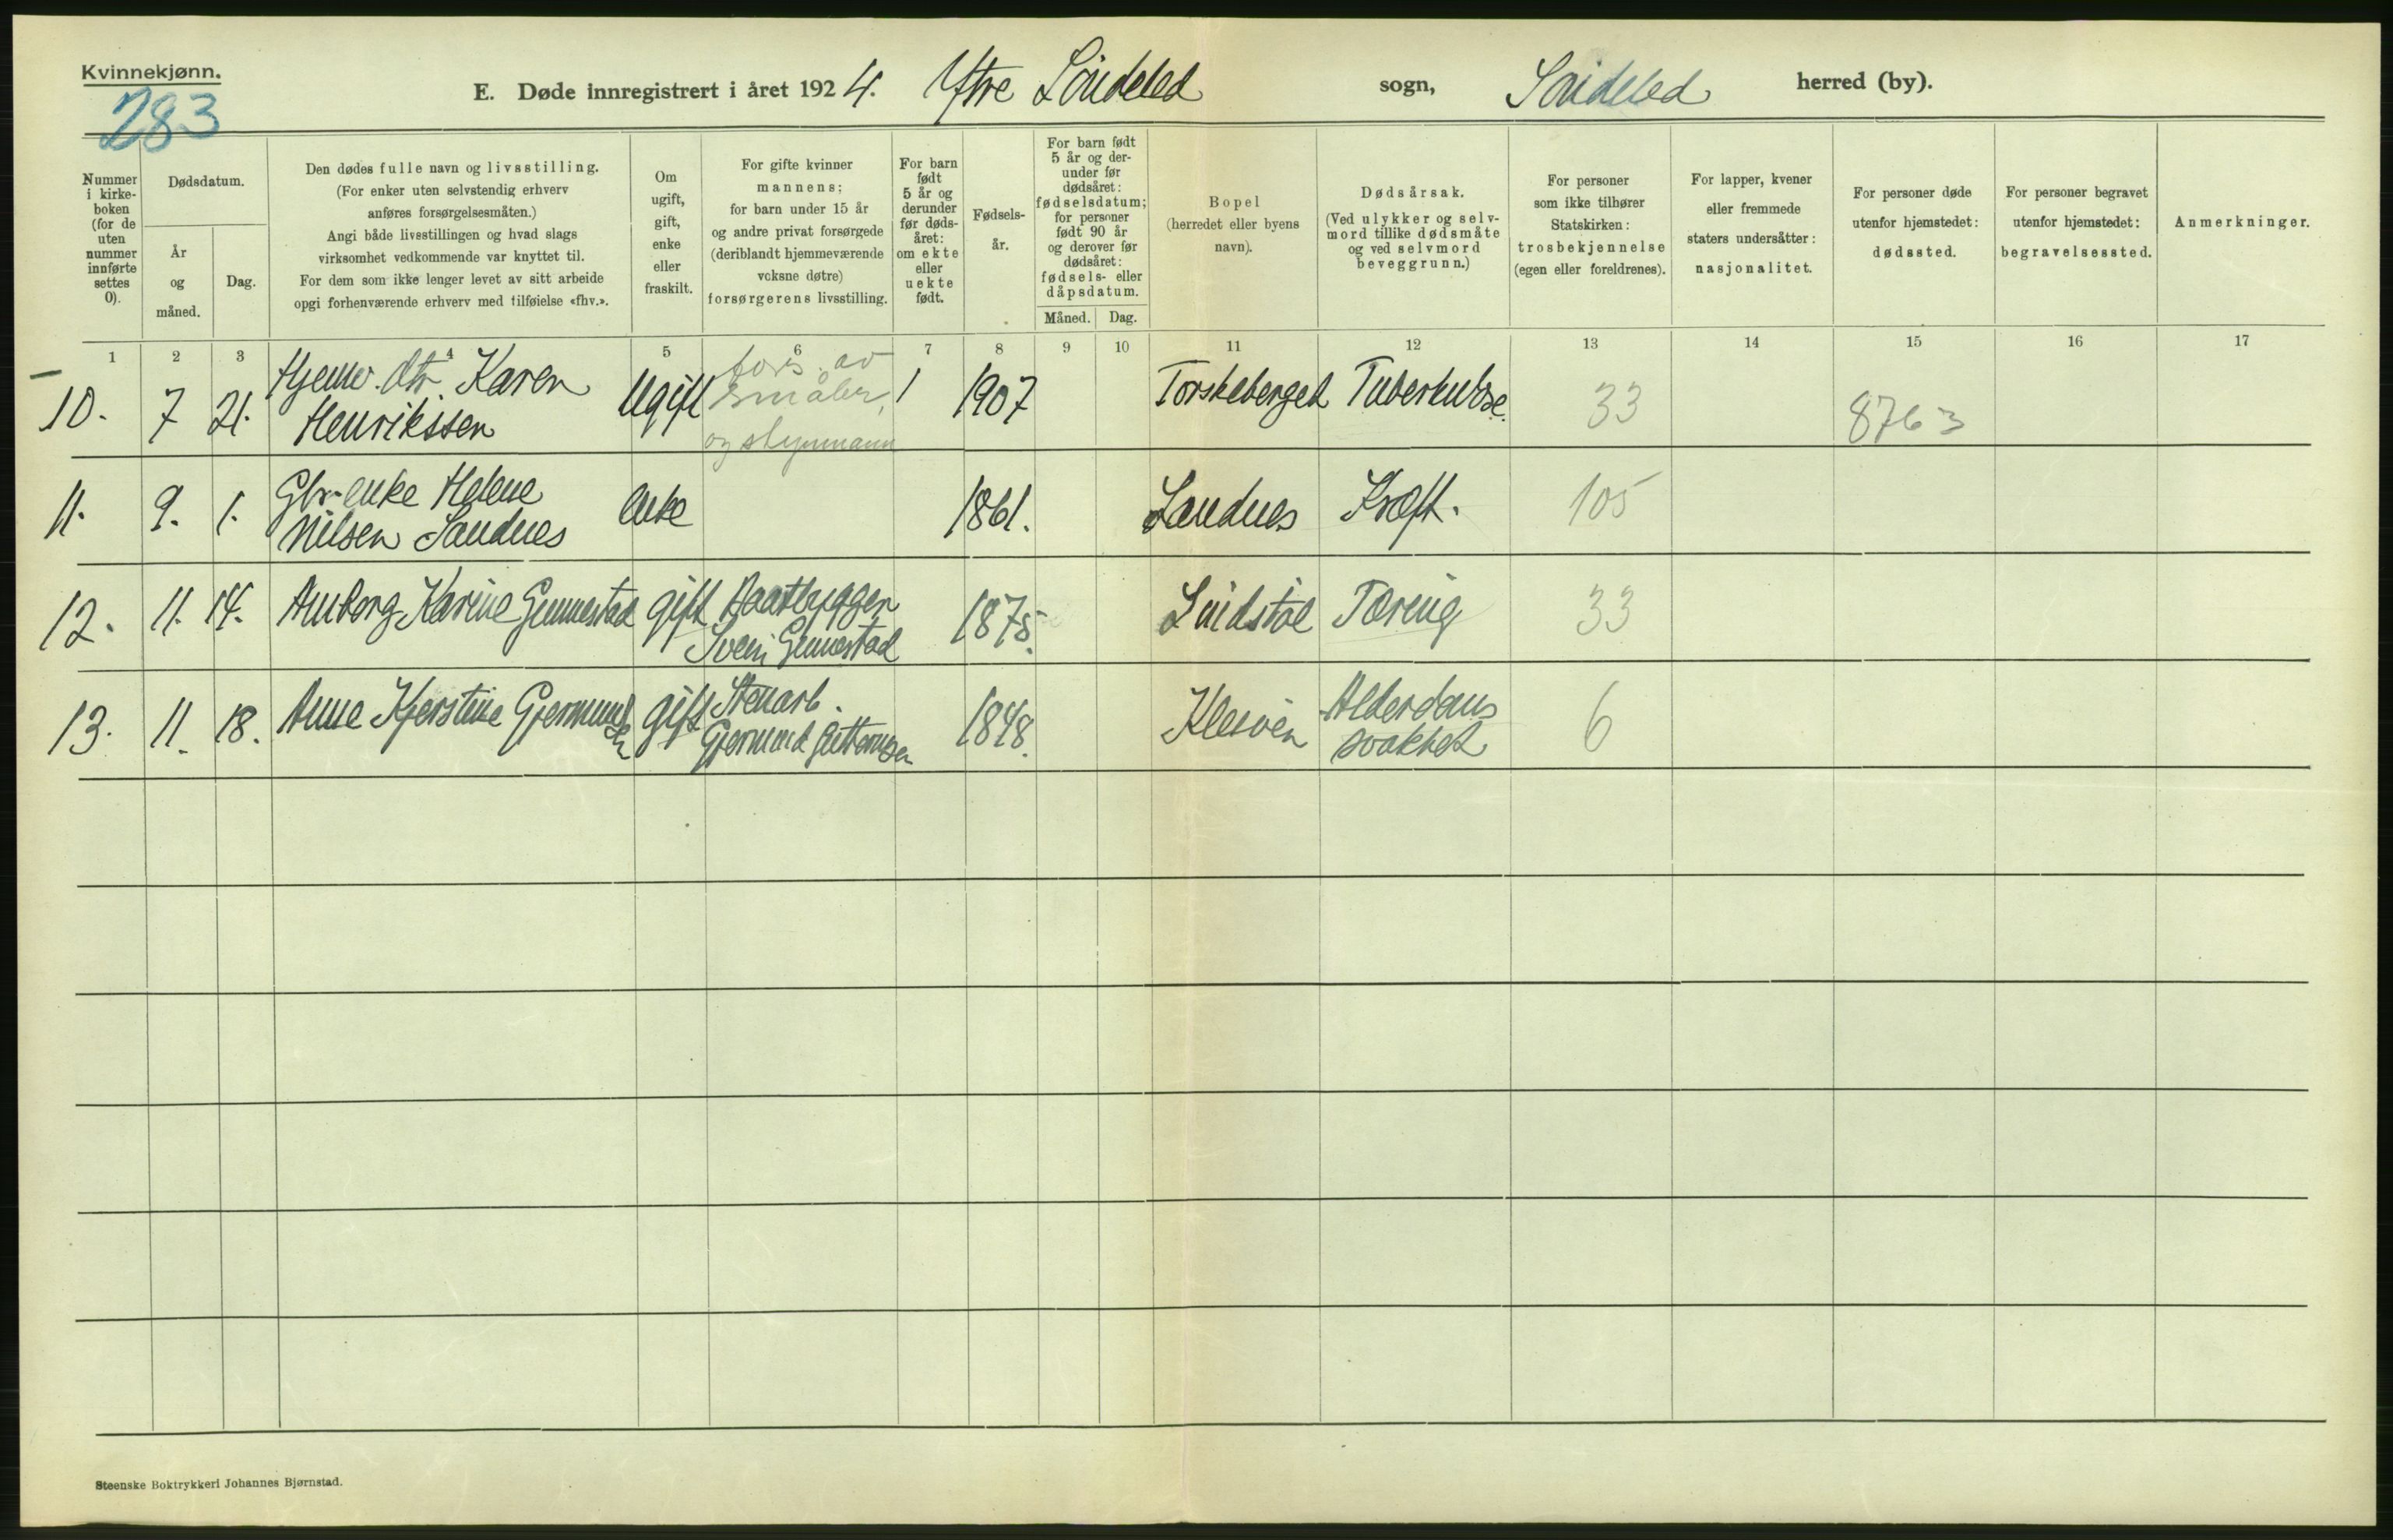 Kvinnekjønn.
283
E. Døde innregistrert i året 1924. Ytre Söndeled sogn, Söndeled herred (by).
Nummer i kirke-boken (for de uten nummer innførte settes 0).
Dødsdatum.
År og måned.
Dag.
Den dødes fulle navn og livsstilling.
(For enker uten selvstendig erhverv
anføres forsørgelsesmåten.)
Angi både livsstillingen og hvad slags
virksomhet vedkommende var knyttet til.
For dem som ikke lenger levet av sitt arbeide
opgi forhenværende erhverv med tilføielse «fhv.».
Om
ugift,
gift,
enke
eller
fraskilt.
For gifte kvinner
mannens;
for barn under 15 år
og andre privat forsørgede
(deriblandt hjemmeværende
voksne døtre)
forsørgerens livsstilling.
For barn
født
5 år og
derunder
før døds-
året:
om ekte
eller
uekte
født.
Fødsels-
år.
For barn født
5 år og der-
under før
dødsåret:
fødselsdatum;
for personer
født 90 år
og derover før
dødsåret:
fødsels- eller
dåpsdatum.
Måned. Dag.
Bopel
(herredet eller byens
navn).
Dødsårsak.
(Ved ulykker og selv-
mord tillike dødsmåte
og ved selvmord
beveggrunn.)
For personer
som ikke tilhører
Statskirken:
trosbekjennelse
(egen eller foreldrenes).
For lapper, kvener
eller fremmede
staters undersåtter:
nasjonalitet.
For personer døde
utenfor hjemstedet:
dødssted.
For personer begravet
utenfor hjemstedet:
begravelsessted.
Anmerkninger.
1 2 3 4 5 6 7 8 9 10 11 12 13 14 15 16 17
10. 7 21. Hjemv. dtr. Karen Henrikssen Ugift fors. av småbr. og styrmann 1 1907 Torskeberget Tuberkulose. 33 8763
11. 9. 1. Gbr-enke Helene Nilsen Sandnes Enke 1861. Sandnes Kræft. 105
12. 11. 14. Anborg Karine Gunnestad gift Baatbygger Svein Gunnestad 1875. Lindstöl Tæring 33
13. 11. 18. Anne Kjerstine Gjermundsen gift Stenarb. Gjermund Guttormsen 1848. Alderdoms svakhet 6
Steenske Boktrykkeri Johannes Bjørnstad.